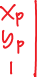 Xp
yp
1